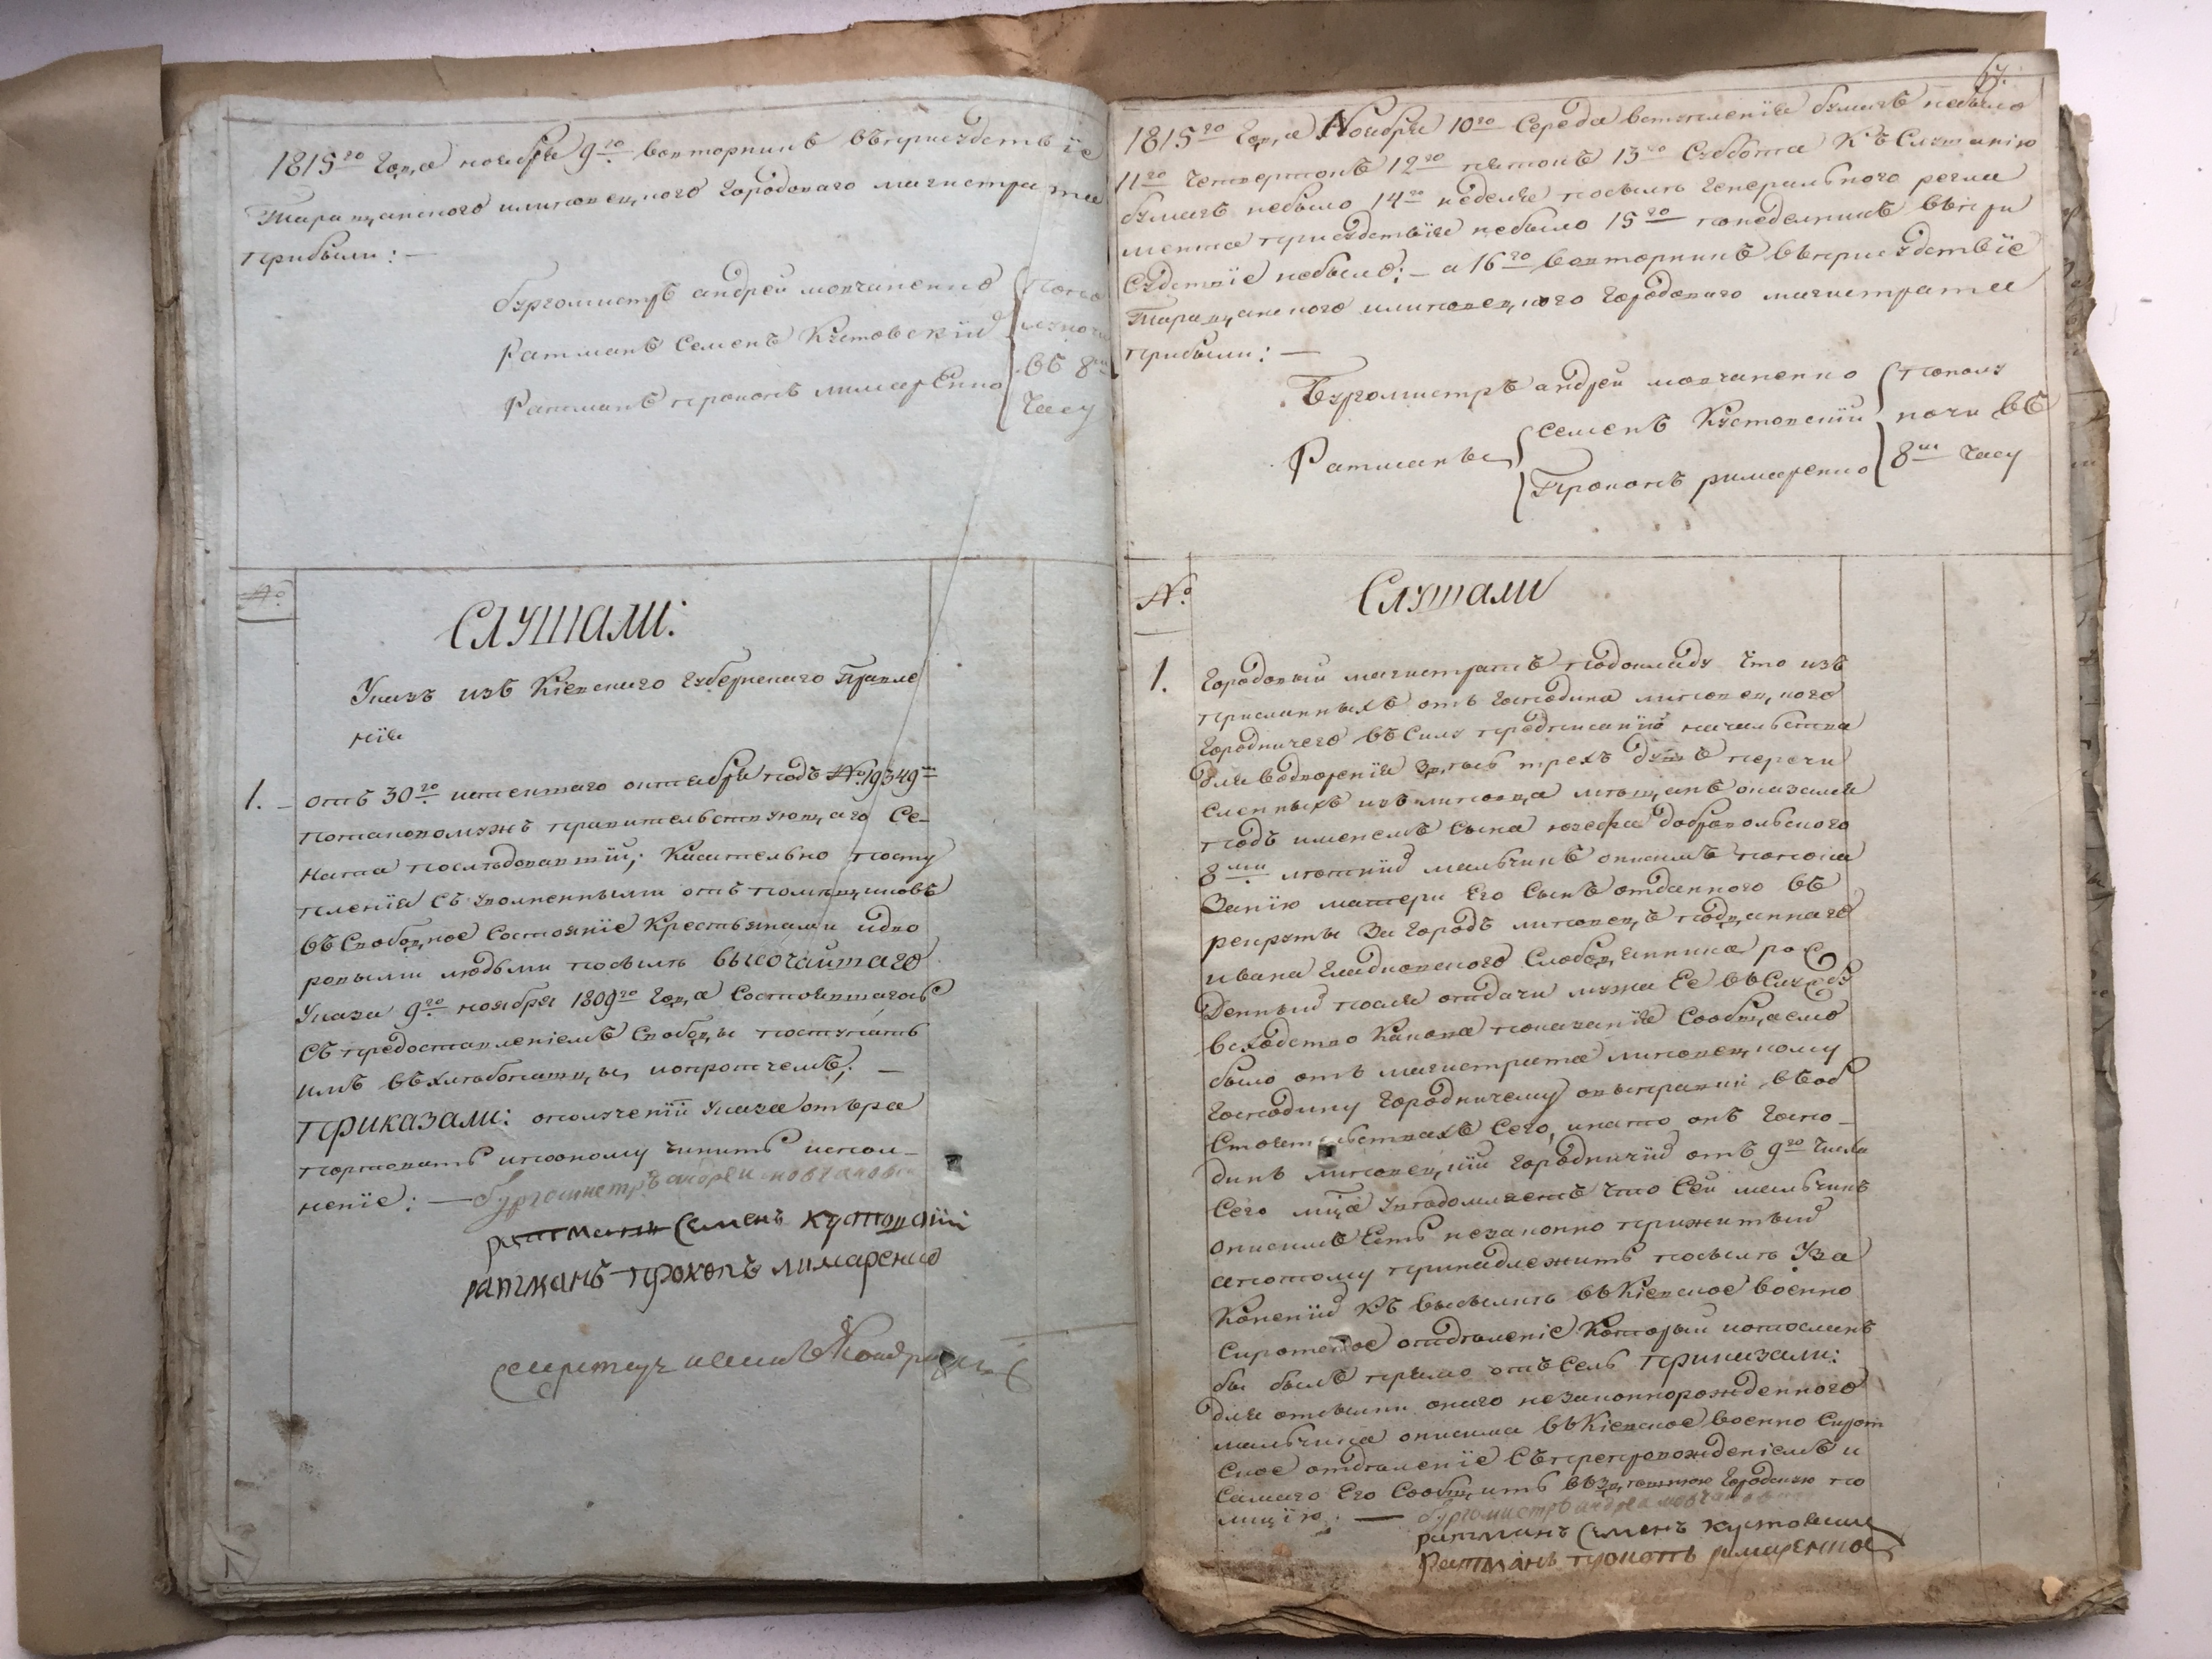 1815го года ноября 9го вовторникъ въприсудствїе
Таращанского илиповецкого городоваго магистрата
прибыли: —
бургомистръ андрей мовчаненко
Ратманъ Семенъ Кустовскїй
Ратманъ прокопъ лимаренко
въ 8м
часу
№
СЛУШАЛИ:
Указъ изъ Кіевского губернского Правле
нїя
1. отъ 30го истекшаго октября подъ №19349м
Сената последовавшїй; Касательно посту
пленїя съ уволненными отъ помещиковъ
въ Свободное Состоянїе Крестьянами идво
ровыми людьми посылъ высочайшаго
Указа 9го ноября 1809го года Состоявшагось
Съ предоставленїемъ Свободы поступать
имъ въ хлебопашцы, ипротчемъ; —
ПРИКАЗАЛИ: ополученїи указа отъра
портовать ипооному чинить испол-
ненїе: — бургоминстръ андреи мовчановъ
ратманъ Семенъ кустовскїй
ратманъ прокопъ лимаренко
Секретарь
1815го года Ноября 10го Середа вступленїя бумагъ небыло
11го четвертокъ 12го пятокъ 13го Суббота Къ Слушанїю
бумагъ небыло 14го неделя посылъ генерального регла
мента присудствїя небыло 15го понеделникъ въпри
Судствїе небыло: — а 16го вовторникъ въприсудствїе
Таращанского илиповецкого городоваго магистрата
прибыли: —
Бургомистръ андрей мовчаненко
Ратманы
Семенъ Кустовскїй
Прокопъ римаренко
пополу
ночи въ
8м часу
№
Слушали
1. Городовый магистратъ подокладу что изъ
присланныхъ отъ Господина липовецкого
Городничего въ Силу предписанїю начальства
для водворенїя здесь трехъ душъ перечи
Сленныхъ изъ липовца мещанъ оказался
подъ именемъ Сына юзефа Добровольского
8ми летнїй мальчикъ онисимъ попока
Занїю матери Его Сынъ отданного въ
рекруты За городъ липовецъ подданнаго
ивана гладковского Слободянника рож
Денный после отдачи мужа Ее въСлужбу
вследство Какова показанїя Сообщаемо
было отъ магистрата липовецкому
Господину Городничему овыправки въоб
Стоятельствахъ Сего, инато онъ Госпо-
динъ липовецкїй городничїй отъ 9го числа
Сего мца уведомляетъ что Сей мальчикъ
онисимъ Есть незаконно прижитый
апотому принадлежитъ посылъ Уза
Коненїй Къ высылкъ въКїевское военно
Сиротское отделенїе Который ипосланъ
бы былъ прямо отъСель Приказали:
для отсылки онаго незаконнорожденного
мальчика онисима въКїевское военно Сирот
Ское отделенїе Съпрепровожденїемъ и
Самаго Его Сообщить въздешнюю Городскую по
лицїю. — бургомистръ андрей мовчановъ
ратманъ Семенъ кустовски
Ратманъ прокопъ римаренко